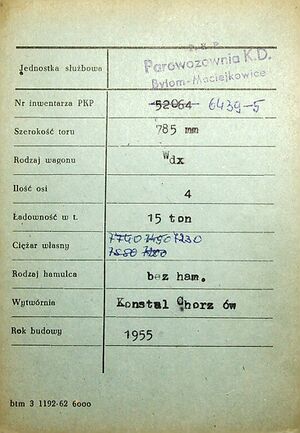 P.K.P
Parowozownia K.D.
Jednostka służbowa
Bytom-Maciejkowice
Nr inwentarza PKP 52064 6439-5
Szerokość toru 785 mm
Rodzaj wagonu Wdx
Ilość osi 4
Ładowność w t. 15 ton
Ciężar własny 7740 7450 7230
Rodzaj hamulca bez ham.
Wytwórnia Konstal Chorz ów
Rok budowy 1955
btm 3 1192-62 6000